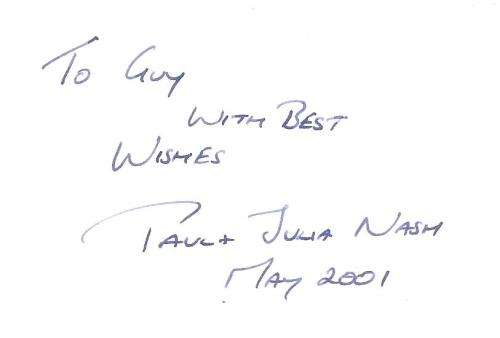 To Guy
With Best
Wishes
Paul + Julia Nash
May 2001